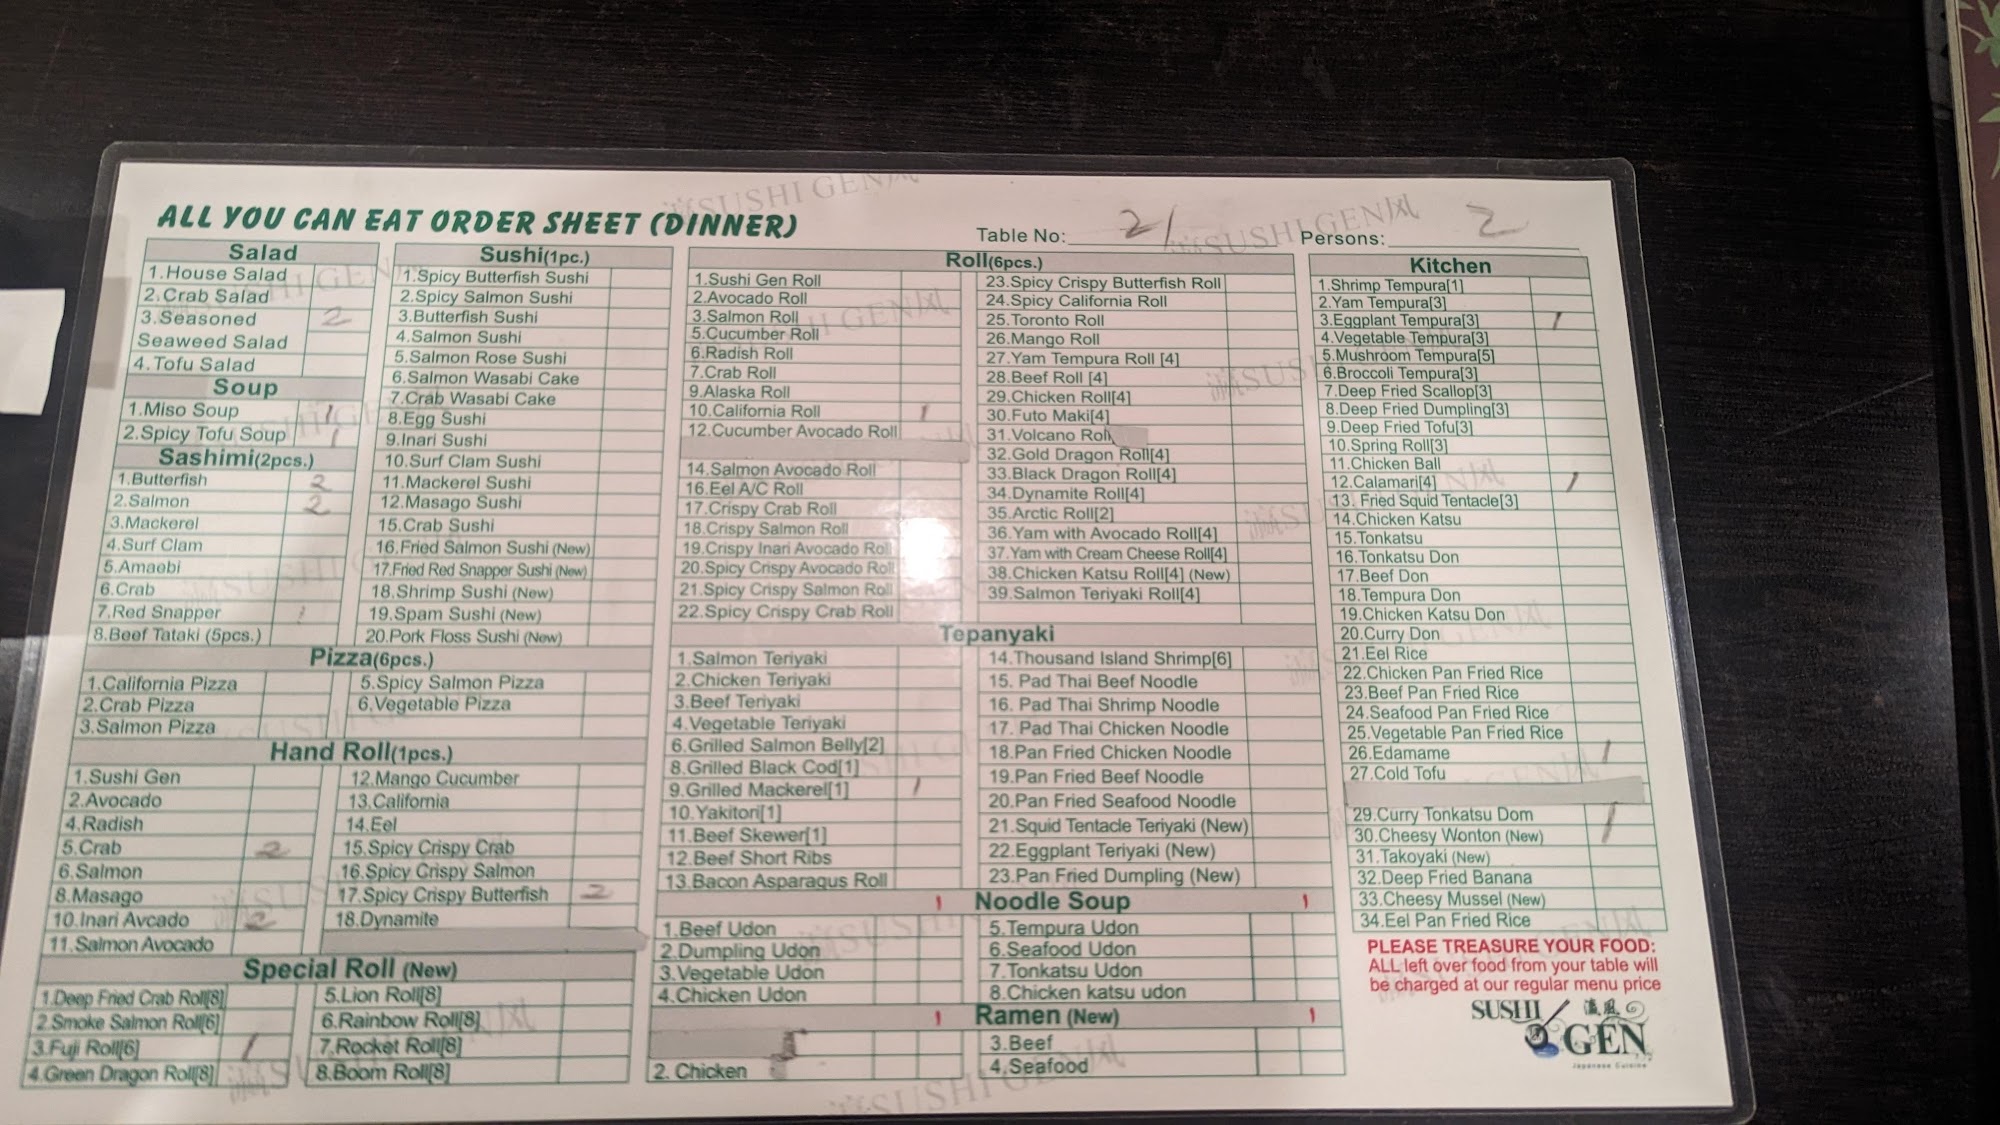 ALL YOU CAN EAT ORDER SHEET (DINNER)
Table No: 21
Persons: 2
Salad
1.House Salad
2.Crab Salad
3.Seasoned 2
Seaweed Salad
4.Tofu Salad
Soup
1.Miso Soup 1
2.Spicy Tofu Soup 1
Sashimi(2pcs.)
1.Butterfish 2
2.Salmon 2
3.Mackerel
4.Surf Clam
5.Amaebi
6.Crab
7.Red Snapper 1
8.Beef Tataki (5pcs.)
Sushi(1pc.)
1.Spicy Butterfish Sushi
2.Spicy Salmon Sushi
3.Butterfish Sushi
4.Salmon Sushi
5.Salmon Rose Sushi
6.Salmon Wasabi Cake
7.Crab Wasabi Cake
8.Egg Sushi
9.Inari Sushi
10.Surf Clam Sushi
11.Mackerel Sushi
12.Masago Sushi
15.Crab Sushi
16.Fried Salmon Sushi (New)
17.Fried Red Snapper Sushi (New)
18.Shrimp Sushi (New)
19.Spam Sushi (New)
20.Pork Floss Sushi (New)
Pizza(6pcs.)
1.California Pizza
2.Crab Pizza
3.Salmon Pizza
5.Spicy Salmon Pizza
6.Vegetable Pizza
Hand Roll(1pcs.)
1.Sushi Gen
2.Avocado
4.Radish
5.Crab 2
6.Salmon
8.Masago
10.Inari Avcado 2
11.Salmon Avocado
12.Mango Cucumber
13.California
14.Eel
15.Spicy Crispy Crab
16.Spicy Crispy Salmon
17.Spicy Crispy Butterfish 2
18.Dynamite
Special Roll (New)
1.Deep Fried Crab Roll[8]
2.Smoke Salmon Roll[6]
3.Fuji Roll[6] 1
4.Green Dragon Roll[8]
5.Lion Roll[8]
6.Rainbow Roll[8]
7.Rocket Roll[8]
8.Boom Roll[8]
Roll(6pcs.)
1.Sushi Gen Roll
2.Avocado Roll
3.Salmon Roll
5.Cucumber Roll
6.Radish Roll
7.Crab Roll
9.Alaska Roll
10.California Roll 1
12.Cucumber Avocado Roll
14.Salmon Avocado Roll
16.Eel A/C Roll
17.Crispy Crab Roll
18.Crispy Salmon Roll
19.Crispy Inari Avocado Roll
20.Spicy Crispy Avocado Roll
21.Spicy Crispy Salmon Roll
22.Spicy Crispy Crab Roll
23.Spicy Crispy Butterfish Roll
24.Spicy California Roll
25.Toronto Roll
26.Mango Roll
27.Yam Tempura Roll [4]
28.Beef Roll [4]
29.Chicken Roll[4]
30.Futo Maki[4]
31.Volcano Roll
32.Gold Dragon Roll[4]
33.Black Dragon Roll[4]
34.Dynamite Roll[4]
35.Arctic Roll[2]
36.Yam with Avocado Roll[4]
37.Yam with Cream Cheese Roll[4]
38.Chicken Katsu Roll[4] (New)
39.Salmon Teriyaki Roll[4]
Tepanyaki
1.Salmon Teriyaki
2.Chicken Teriyaki
3.Beef Teriyaki
4.Vegetable Teriyaki
6.Grilled Salmon Belly[2]
8.Grilled Black Cod[1]
9.Grilled Mackerel[1] 1
10.Yakitori[1]
11.Beef Skewer[1]
12.Beef Short Ribs
13.Bacon Asparagus Roll
14.Thousand Island Shrimp[6]
15. Pad Thai Beef Noodle
16. Pad Thai Shrimp Noodle
17. Pad Thai Chicken Noodle
18.Pan Fried Chicken Noodle
19.Pan Fried Beef Noodle
20.Pan Fried Seafood Noodle
21.Squid Tentacle Teriyaki (New)
22.Eggplant Teriyaki (New)
23.Pan Fried Dumpling (New)
! Noodle Soup !
1.Beef Udon
2.Dumpling Udon
3.Vegetable Udon
4.Chicken Udon
5.Tempura Udon
6.Seafood Udon
7.Tonkatsu Udon
8.Chicken katsu udon
! Ramen (New) !
2. Chicken
3.Beef
4.Seafood
Kitchen
1.Shrimp Tempura[1]
2.Yam Tempura[3]
3.Eggplant Tempura[3] 1
4.Vegetable Tempura[3]
5.Mushroom Tempura[5]
6.Broccoli Tempura[3]
7.Deep Fried Scallop[3]
8.Deep Fried Dumpling[3]
9.Deep Fried Tofu[3]
10.Spring Roll[3]
11.Chicken Ball
12.Calamari[4] 1
13. Fried Squid Tentacle[3]
14.Chicken Katsu
15.Tonkatsu
16.Tonkatsu Don
17.Beef Don
18.Tempura Don
19.Chicken Katsu Don
20.Curry Don
21.Eel Rice
22.Chicken Pan Fried Rice
23.Beef Pan Fried Rice
24.Seafood Pan Fried Rice
25.Vegetable Pan Fried Rice
26.Edamame 1
27.Cold Tofu
29.Curry Tonkatsu Dom
30.Cheesy Wonton (New) 1
31.Takoyaki (New)
32.Deep Fried Banana
33.Cheesy Mussel (New)
34.Eel Pan Fried Rice
PLEASE TREASURE YOUR FOOD:
ALL left over food from your table will
be charged at our regular menu price
SUSHI
GEN
Japanese Cuisine